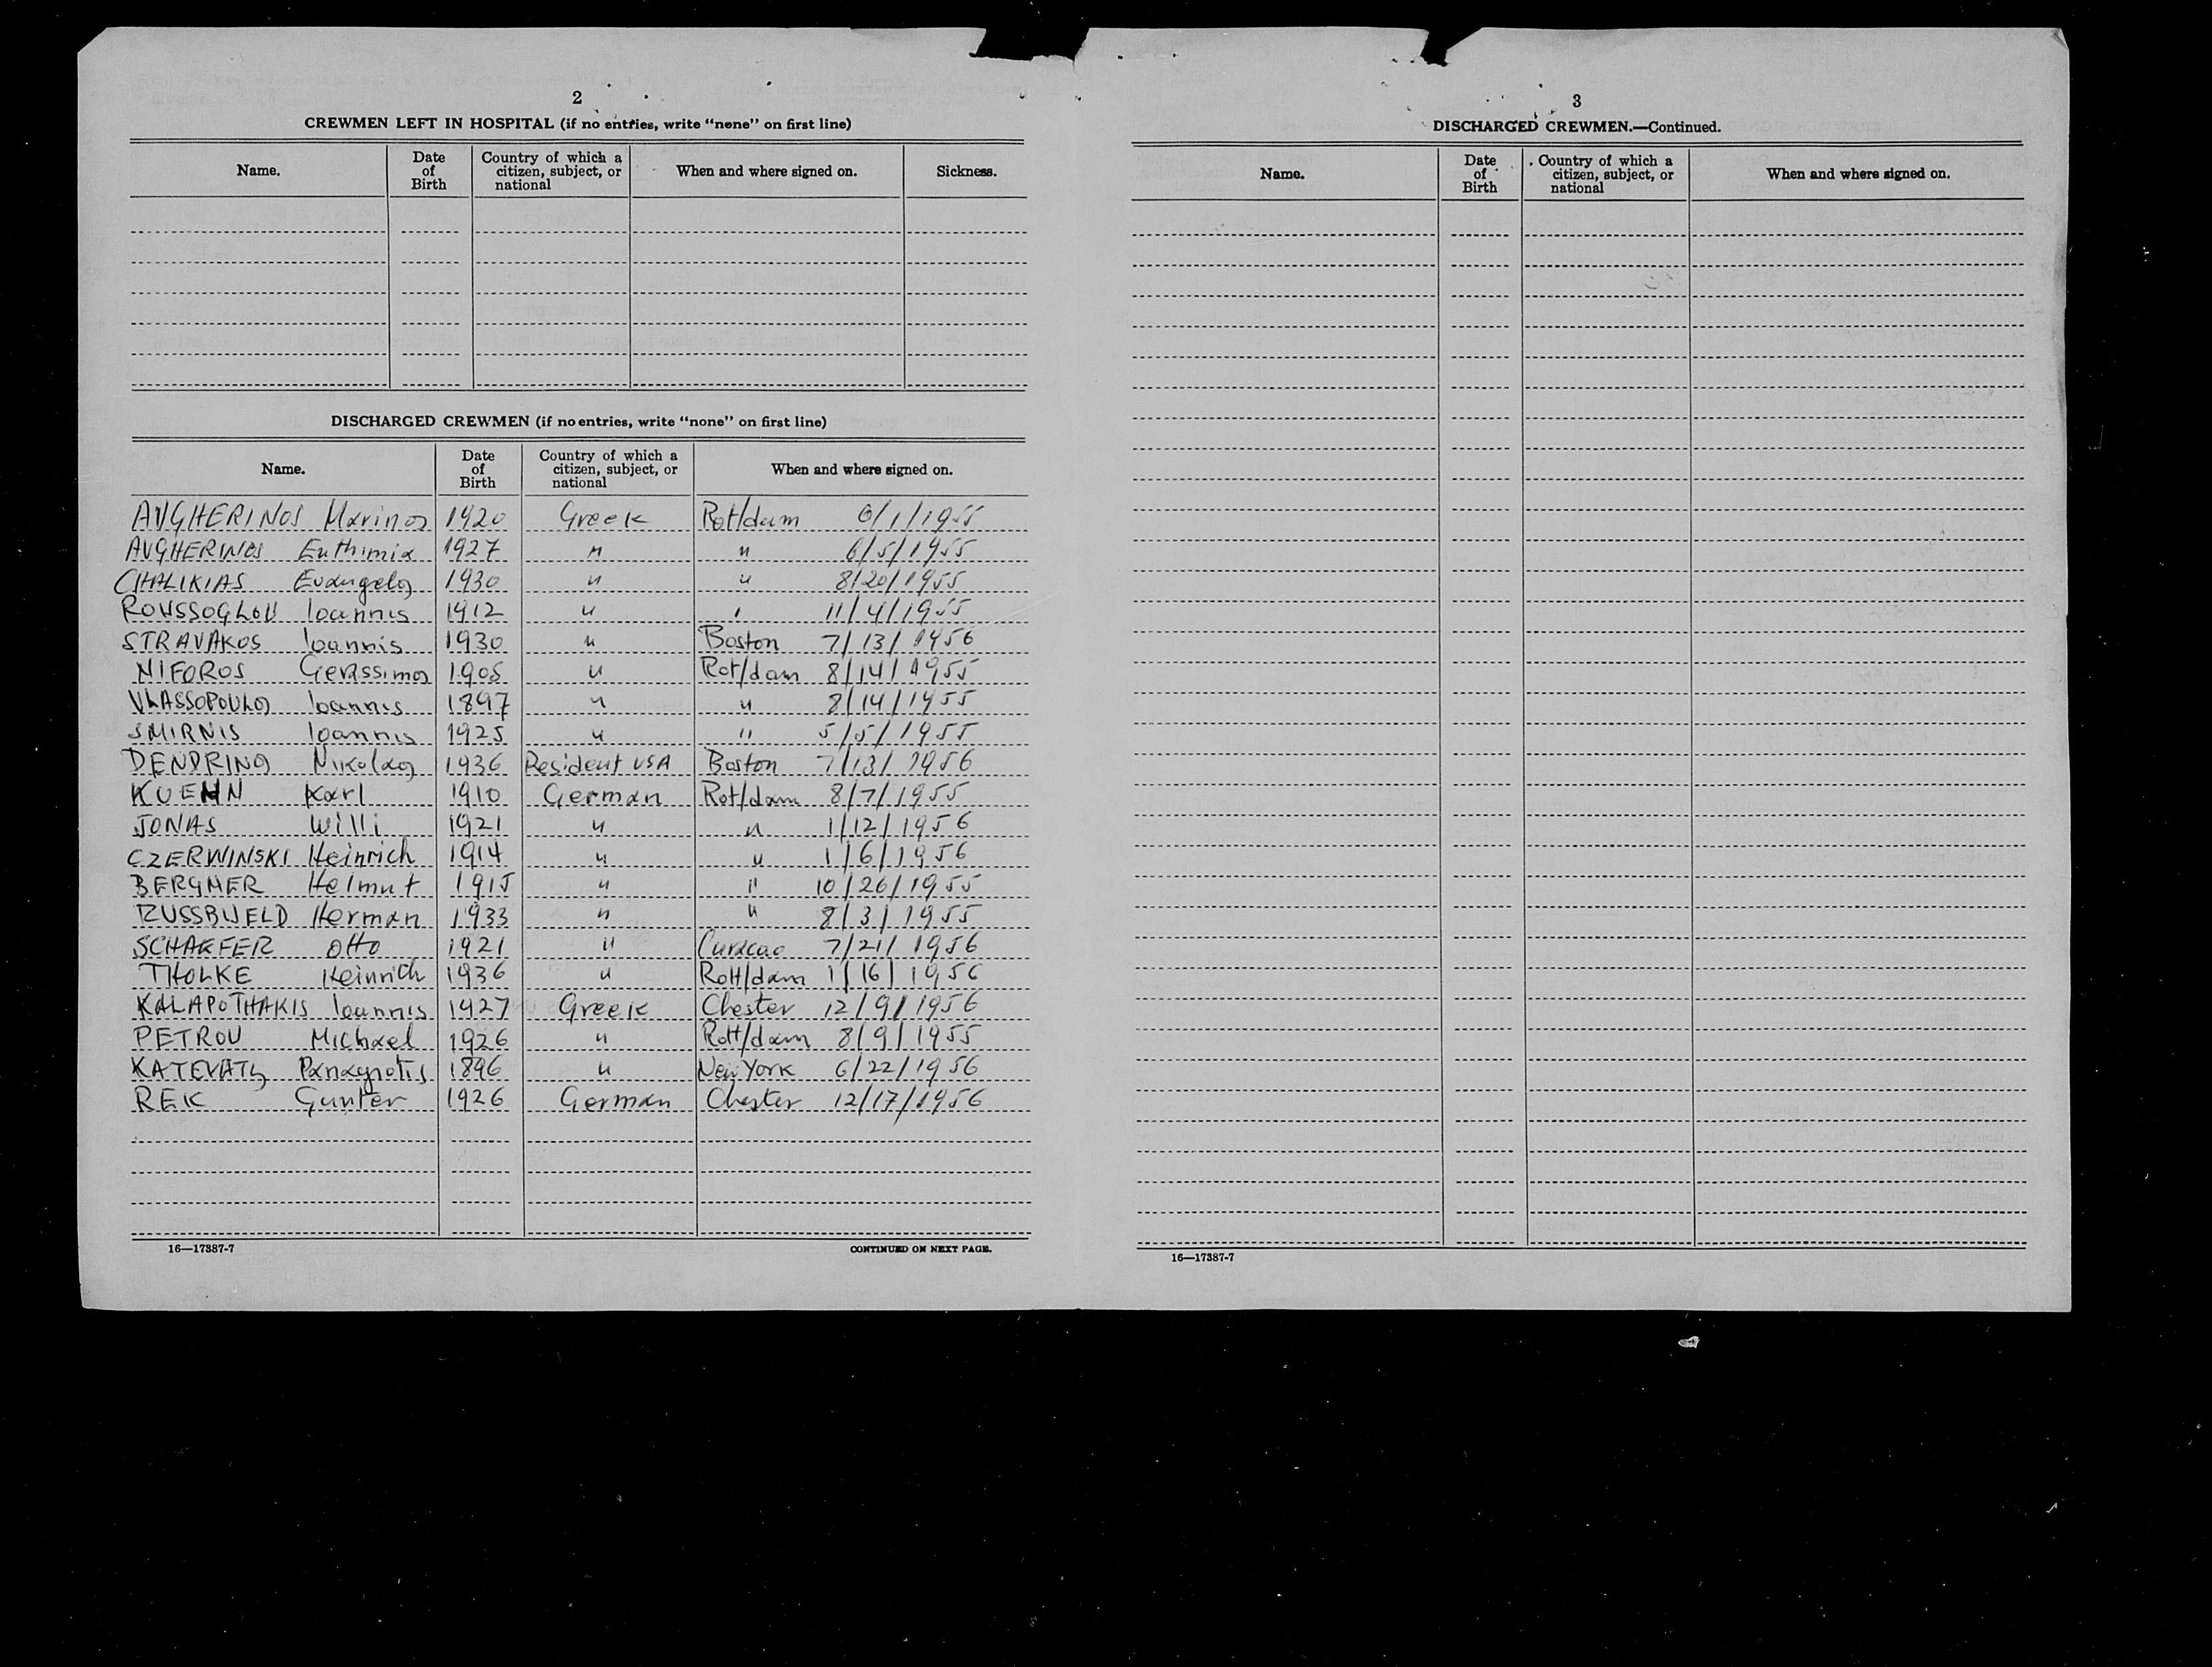 2
CREWMEN LEFT IN HOSPITAL (if no entries, write "none" on first line)
Name. Date of Birth Country of which a citizen, subject, or national When and where signed on. Sickness.
DISCHARGED CREWMEN (if no entries, write "none" on first line)
Name. Date of Birth Country of which a citizen, subject, or national When and where signed on.
AVGHERINOS Marinos 1920 Greek Rot/dam 6/1/1955
AVGHERINOS Euthimia 1927 " " 6/5/1955
CHALIKIAS Evangelos 1930 " " 8/20/1955
ROUSSOGLOU Ioannis 1912 " " 11/4/1955
STRAVAKOS Ioannis 1930 " Boston 7/13/1956
NIFOROS Gerassimos 1905 " Rot/dam 8/14/1955
VLASSOPOULOS Ioannis 1897 " " 8/14/1955
SMIRNIS Ioannis 1925 " " 5/5/1955
DENDRINOS Nikolaos 1936 Resident USA Boston 7/13/1956
KUEHN Karl 1910 German Rot/dam 8/7/1955
JONAS Willi 1921 " " 1/12/1956
CZERWINSKI Heinrich 1914 " " 1/6/1956
BERGNER Helmut 1915 " " 10/26/1955
RUSSBUELD Herman 1933 " " 8/3/1955
SCHAEFER Otto 1921 " Curacao 7/21/1956
THOLKE Heinrich 1936 " Rott/dam 1/16/1956
KALAPOTHAKIS Ioannis 1927 Greek Chester 12/9/1956
PETROU Michael 1926 " Rott/dam 8/9/1955
KATEVATIS Panagiotis 1896 " New York 6/22/1956
REK Gunter 1926 German Chester 12/17/1956
16—17387-7 CONTINUED ON NEXT PAGE.
3
DISCHARGED CREWMEN.—Continued.
Name. Date of Birth Country of which a citizen, subject, or national When and where signed on.
16—17387-7